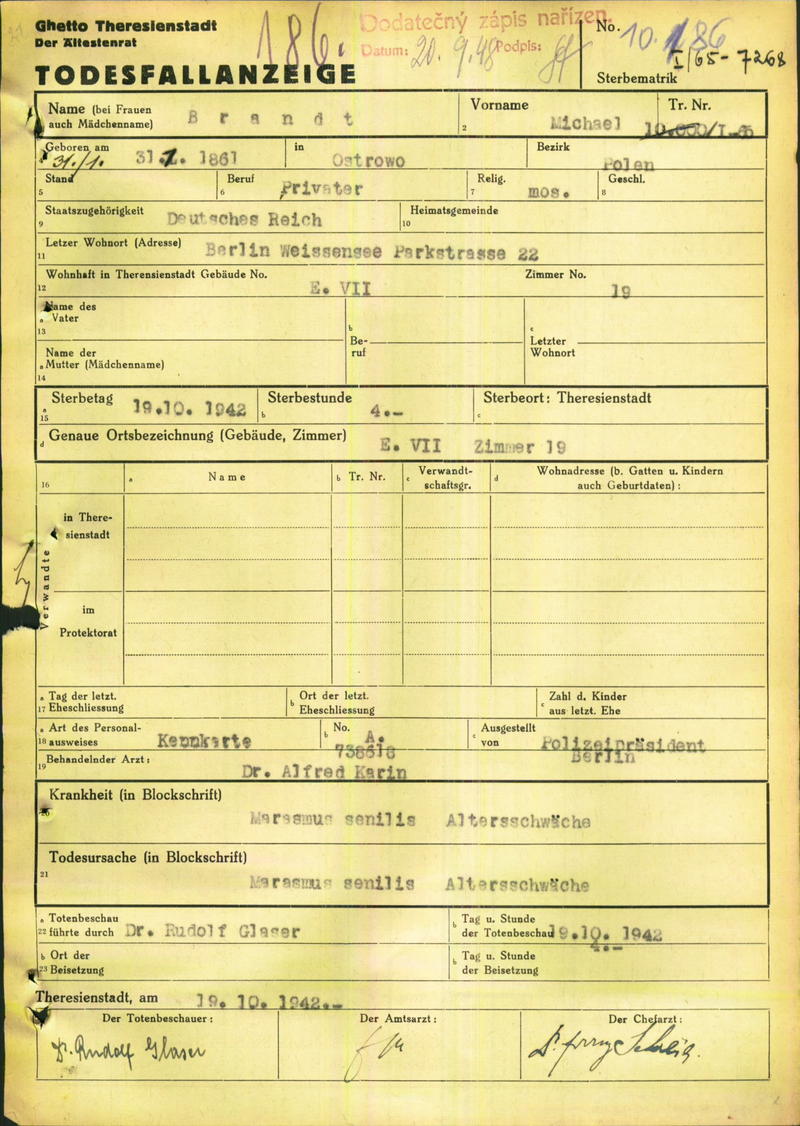 Ghetto Theresienstadt
Der Ältestenrat
TODESFALLANZEIGE
186.
Dodatečný zápis nařízen.
Datum: 20. 9. 48 Podpis:
No. 10.186
I/65-7268
Sterbematrik
Name (bei Frauen auch Mädchenname) Brandt
2 Vorname Michael
Tr. Nr.
Geboren am 31./1. 31. 1861
in Ostrowo
Bezirk Polen
5 Stand
6 Beruf Privater
7 Relig. mos.
8 Geschl.
9 Staatszugehörigkeit Deutsches Reich
10 Heimatsgemeinde
11 Letzer Wohnort (Adresse) Berlin Weissensee Parkstrasse 22
12 Wohnhaft in Therensienstadt Gebäude No. E. VII
Zimmer No. 19
a 13 Name des Vater
b Beruf
c Letzter Wohnort
a 14 Name der Mutter (Mädchenname)
a 15 Sterbetag 19.10. 1942
b Sterbestunde 4.-
c Sterbeort: Theresienstadt
d Genaue Ortsbezeichnung (Gebäude, Zimmer) E. VII Zimmer 19
16
a Name
b Tr. Nr.
c Verwandt-
schaftsgr.
d Wohnadresse (b. Gatten u. Kindern
auch Geburtdaten):
Verwandte
in There-
sienstadt
im
Protektorat
a 17 Tag der letzt. Eheschliessung
b Ort der letzt. Eheschliessung
c Zahl d. Kinder aus letzt. Ehe
a 18 Art des Personal-ausweises Kennkarte
b No. A. 738616
c Ausgestellt von Polizeipräsident Berlin
19 Behandelnder Arzt: Dr. Alfred Karin
20 Krankheit (in Blockschrift)
Marasmus senilis Altersschwäche
21 Todesursache (in Blockschrift)
Marasmus senilis Altersschwäche
a 22 Totenbeschau führte durch Dr. Rudolf Glaser
b Tag u. Stunde der Totenbeschau 19.10. 1942 4.-
b 23 Ort der Beisetzung
b Tag u. Stunde der Beisetzung
Theresienstadt, am 19. 10. 1942.-
Der Totenbeschauer:
Der Amtsarzt:
Der Chefarzt:
Dr. Rudolf Glaser